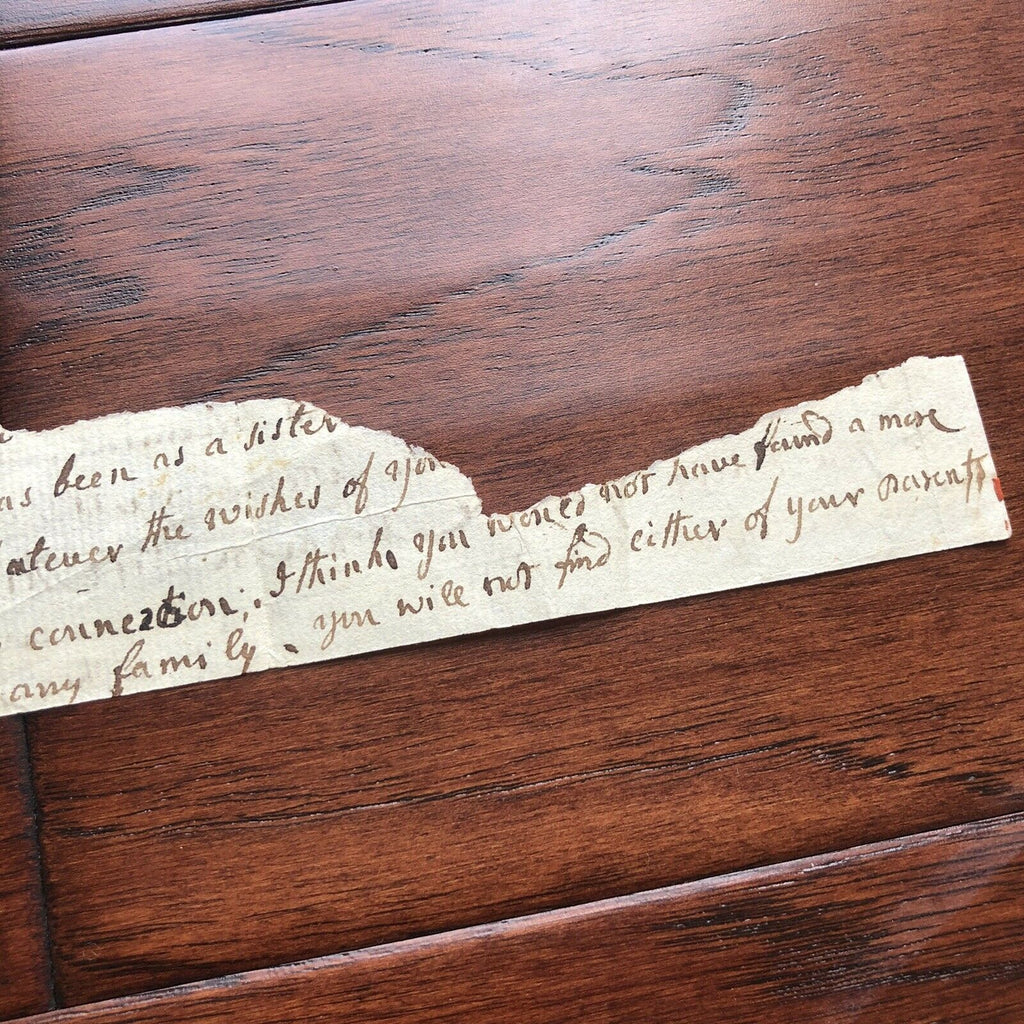 as been as a sister
hatever the wishes of you
connection; I think you would not have found a more
any family. you will not find either of your parents